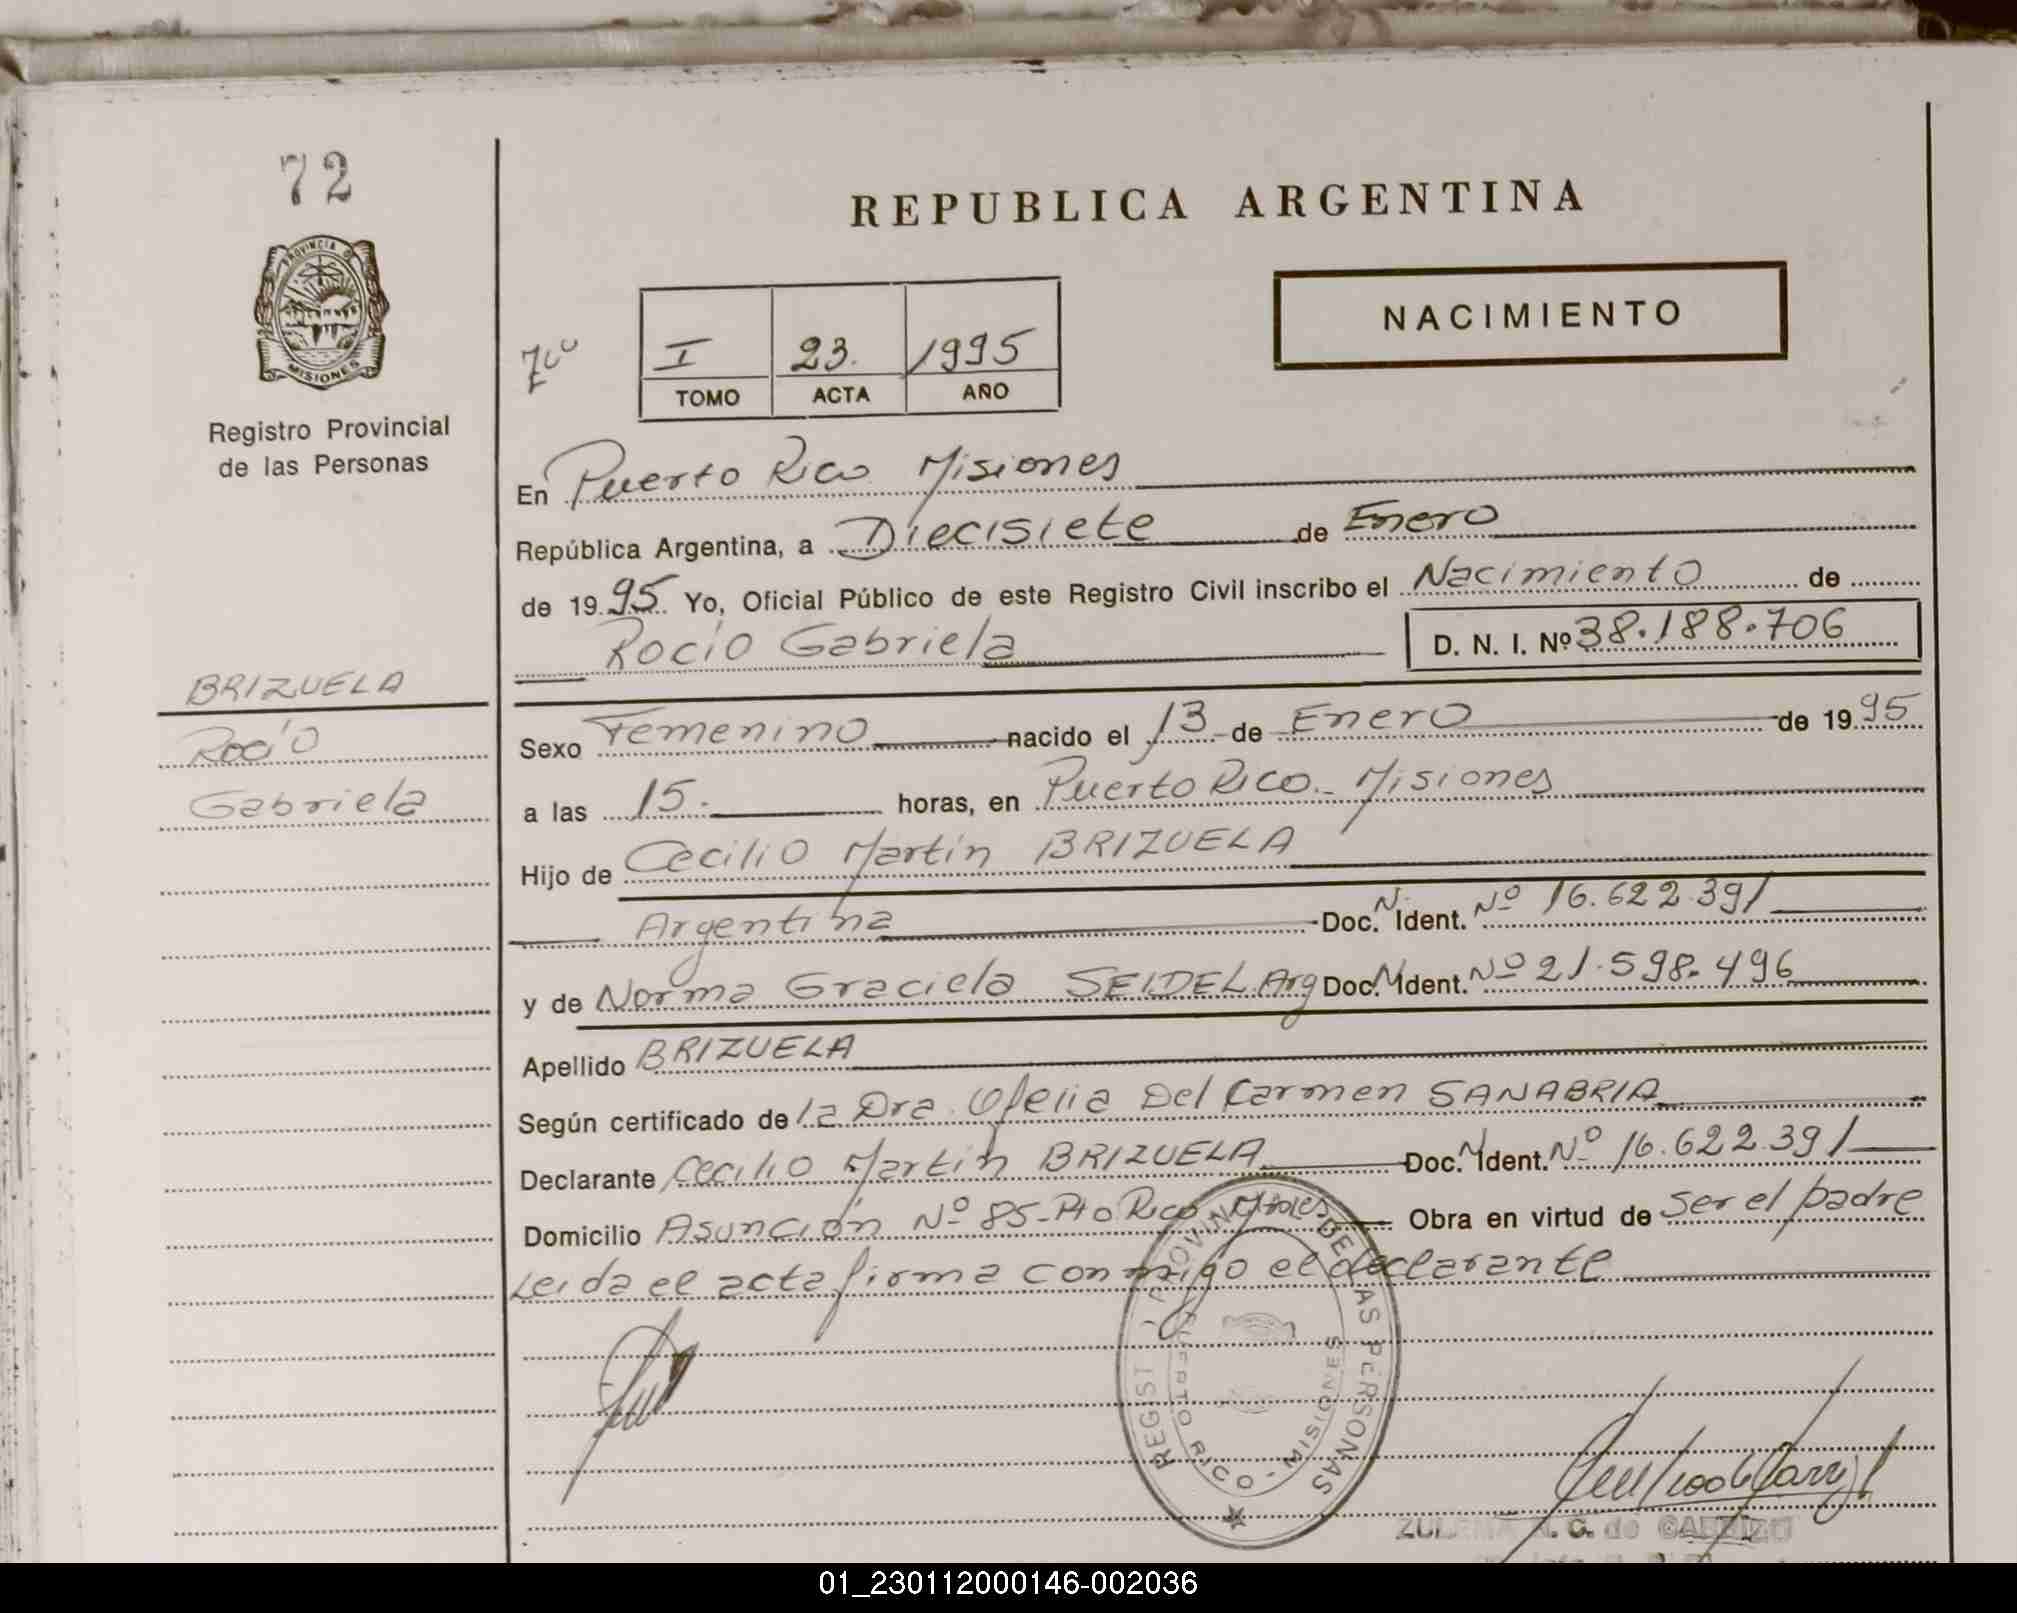 72
PROVINCIA D
MISIONES
Registro Provincial
de las Personas
BRIZUELA
Rocío
Gabriela
REPUBLICA ARGENTINA
NACIMIENTO
I 23. 1995
TOMO ACTA AÑO
En Puerto Rico Misiones
República Argentina, a Diecisiete de Enero
de 1995 Yo, Oficial Público de este Registro Civil inscribo el Nacimiento de
Rocío Gabriela D. N. I. Nº 38.188.706
Sexo Femenino nacido el 13 de Enero de 1995
a las 15. horas, en Puerto Rico.- Misiones
Hijo de Cecilio Martín BRIZUELA
Argentina Doc. N. Ident. Nº 16.622.391
y de Norma Graciela SEIDEL Arg Doc. N Ident. Nº 21.598.496
Apellido BRIZUELA
Según certificado de la Dra. Ofelia Del Carmen SANABRIA
Declarante Cecilio Martín BRIZUELA Doc. N Ident. Nº 16.622.391
Domicilio Asunción Nº 85-Pto Rico Obra en virtud de ser el padre
Leida el acta firma conmigo el declarante
REGIST PROVIN DE LAS PERSONAS
PUERTO RICO - MISIONES
01_230112000146-002036